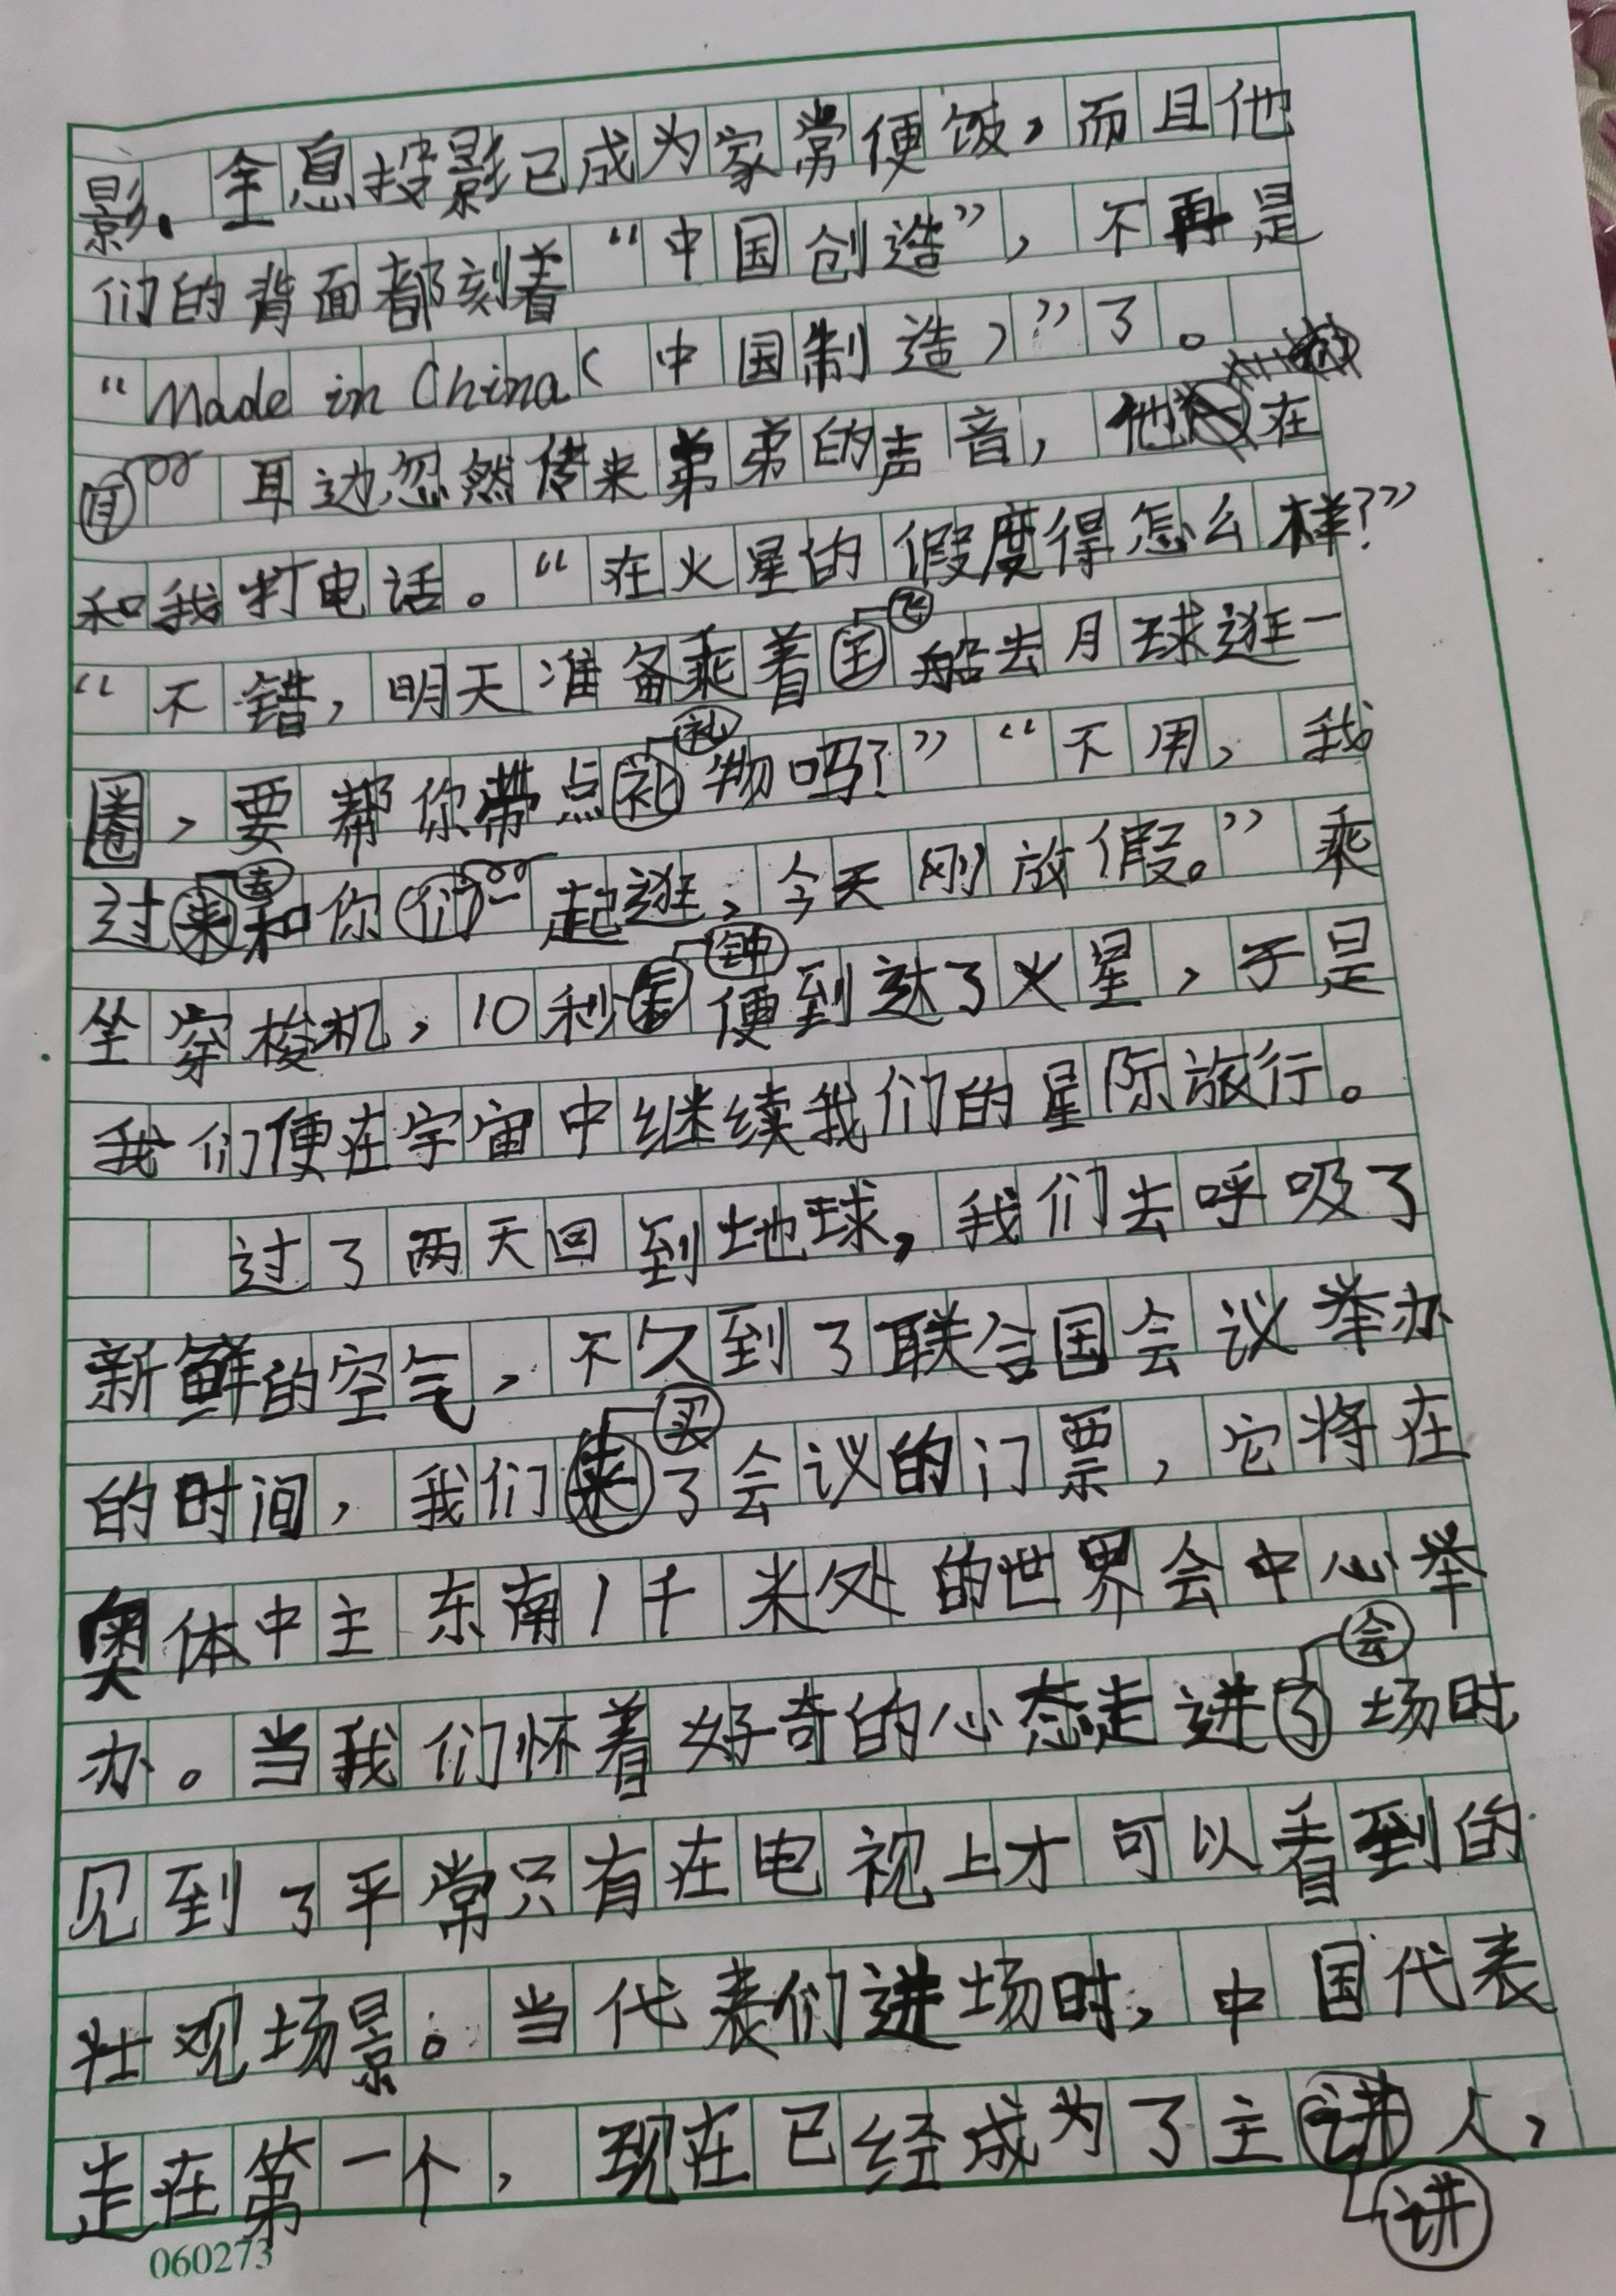 影、全息投影已成为家常便饭，而且他
们的背面都刻着“中国创造”，不再是
“Made in China（中国制造）”了。
耳边忽然传来弟弟的声音，他在
和我打电话。“在火星的假度得怎么样？”
“不错，明天准备乘着飞船去月球逛一
圈，要帮你带点礼物吗？”“不用，我
过去和你一起逛，今天刚放假。”乘
坐穿梭机，10秒钟便到达了火星，于是
我们便在宇宙中继续我们的星际旅行。
过了两天回到地球，我们去呼吸了
新鲜的空气，不久到了联合国会议举办
的时间，我们买了会议的门票，它将在
奥体中主东南1千米处的世界会中心举
办。当我们怀着好奇的心态走进会场时
见到了平常只有在电视上才可以看到的
壮观场景。当代表们进场时，中国代表
走在第一个，现在已经成为了主讲人，
060273